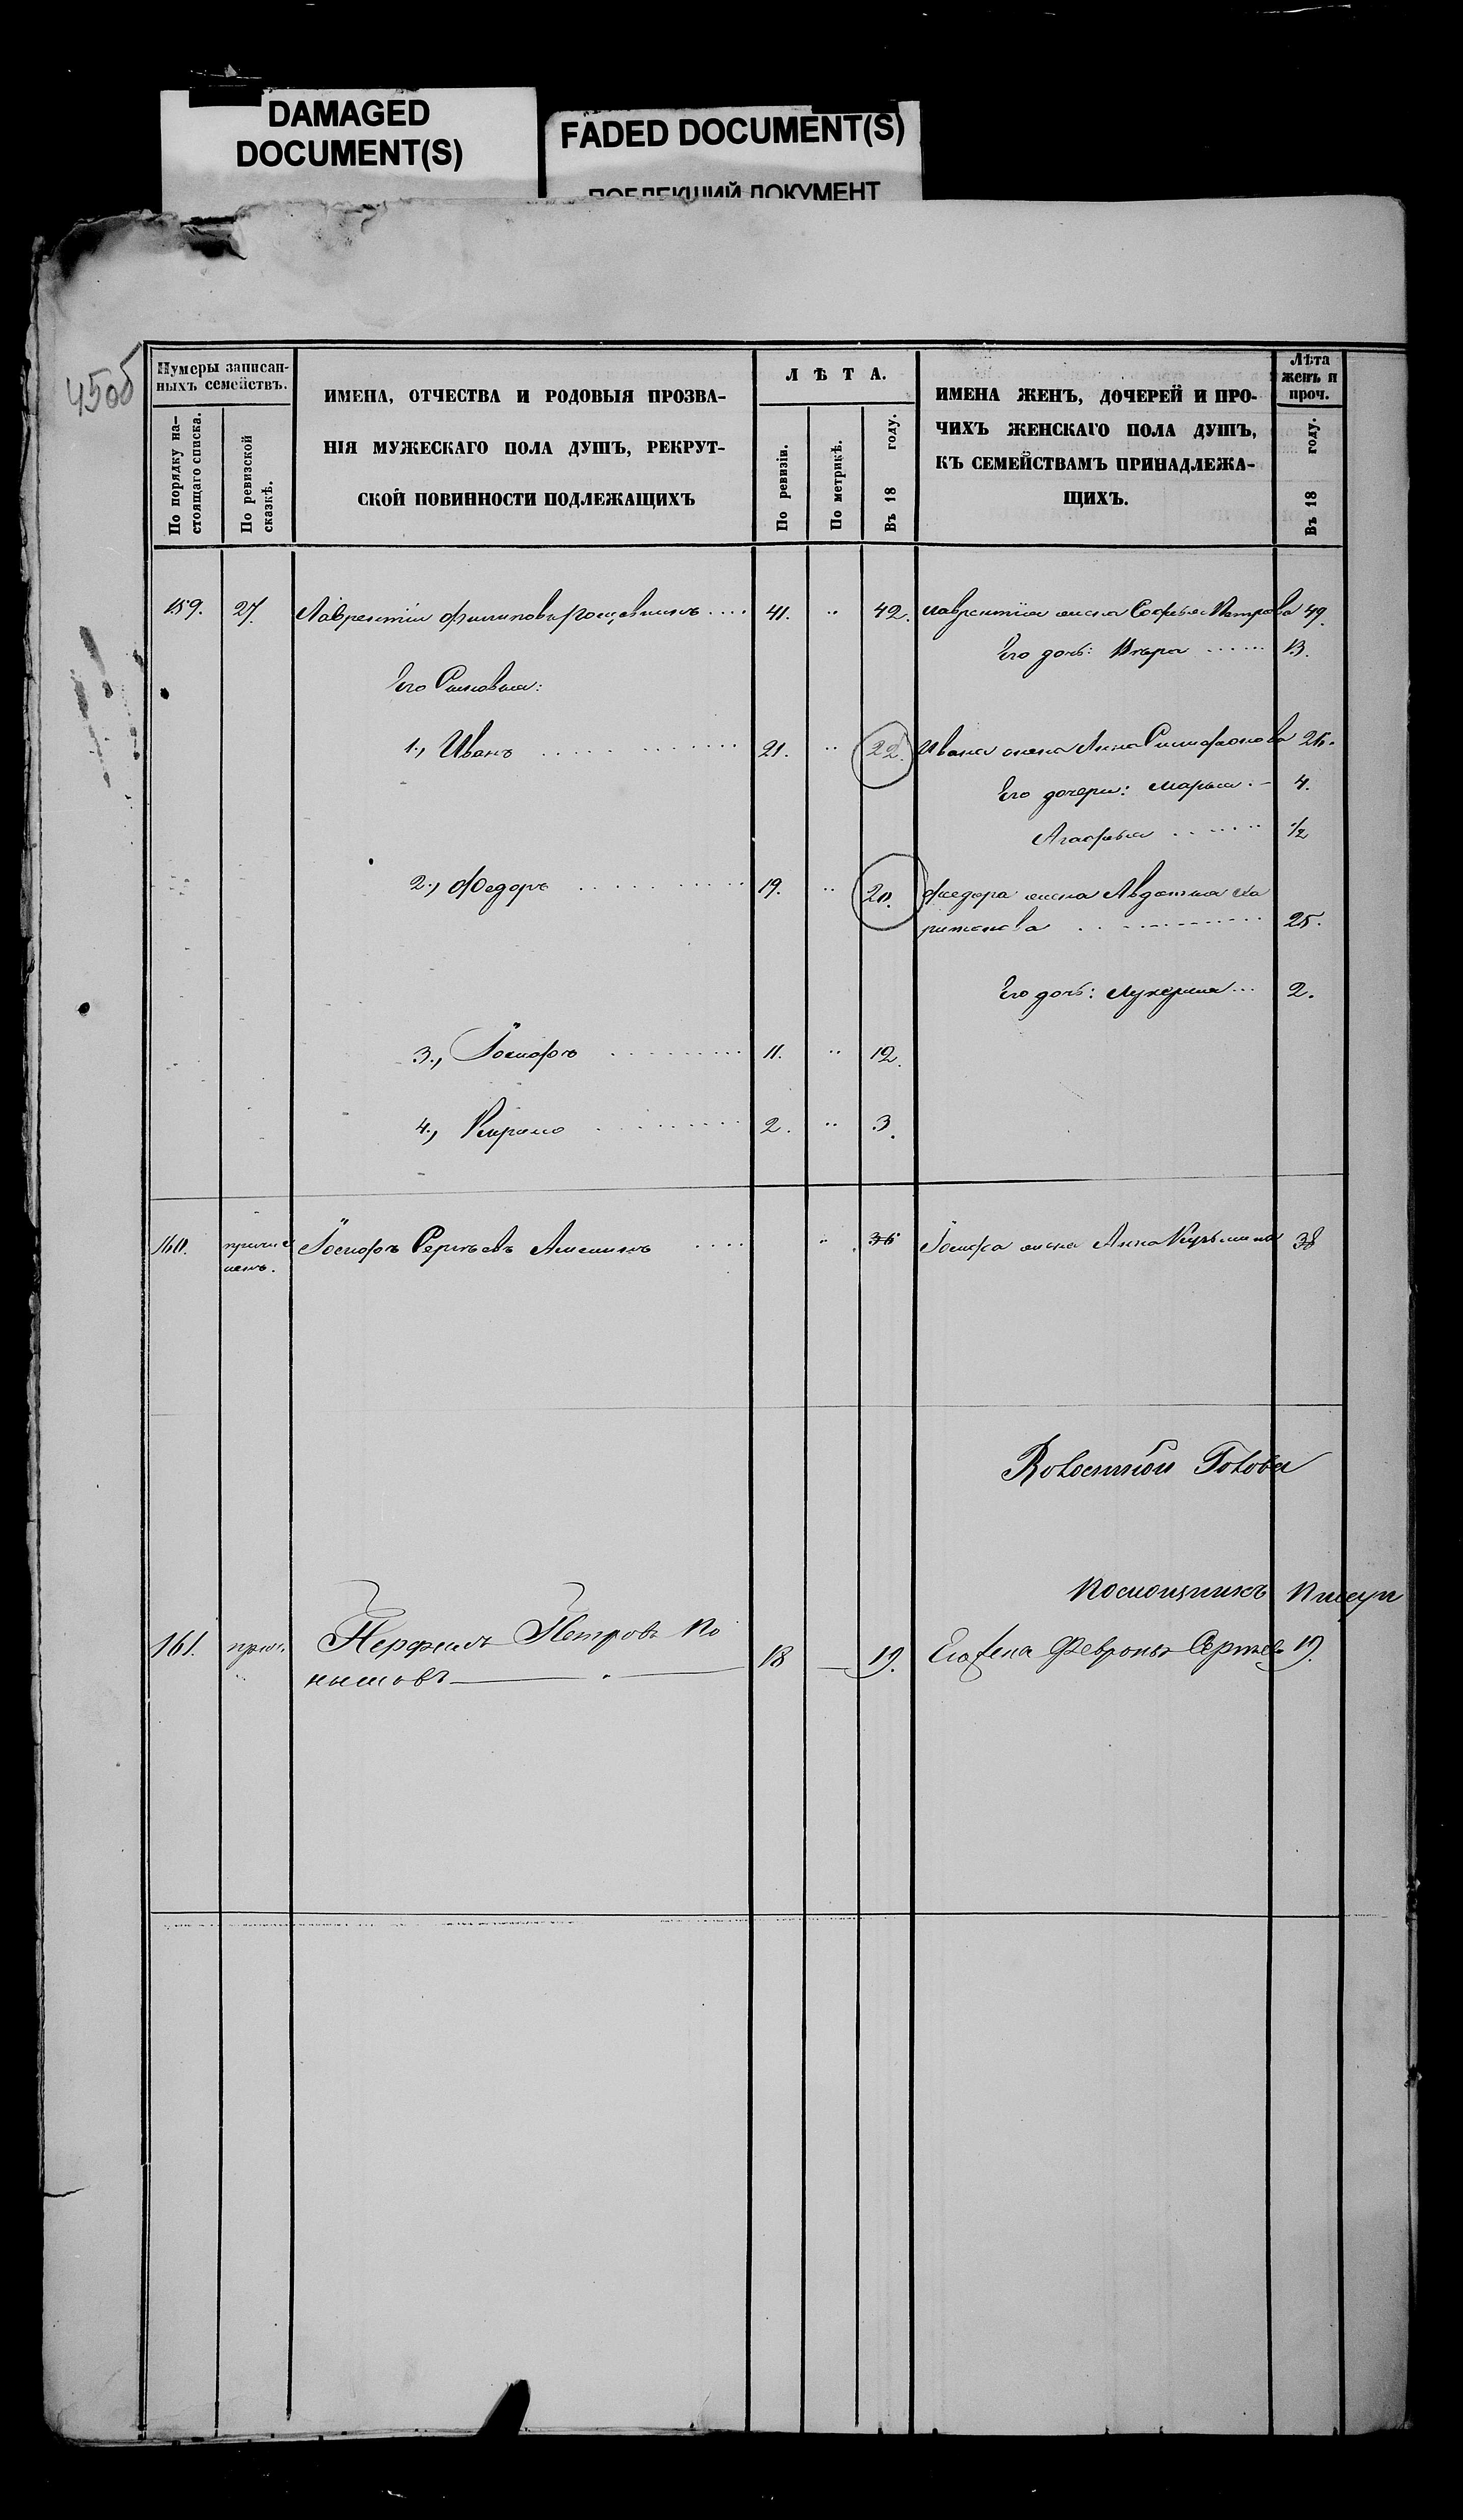 DAMAGED
DOCUMENT(S)
FADED DOCUMENT(S)
ПОБЛЕКШИЙ ДОКУМЕНТ
450б
Нумеры записан-
ныхъ семействъ.
По порядку на-
стоящаго списка.
По ревизской
сказкѣ.
ИМЕНА, ОТЧЕСТВА И РОДОВЫЯ ПРОЗВА-
НІЯ МУЖЕСКАГО ПОЛА ДУШЪ, РЕКРУТ-
СКОЙ ПОВИННОСТИ ПОДЛЕЖАЩИХЪ
ЛѢТА.
По ревизіи.
По метрикѣ.
Въ 18 году.
ИМЕНА ЖЕНЪ, ДОЧЕРЕЙ И ПРО-
ЧИХЪ ЖЕНСКАГО ПОЛА ДУШЪ,
КЪ СЕМЕЙСТВАМЪ ПРИНАДЛЕЖА-
ЩИХЪ.
Лѣта
женъ и
проч.
Въ 18 году.
159. 27. Лаврентій Филиповъ .... 41. " 42. Лаврентія жена Софья Петрова 49.
Его дочь: Вѣра ...... 13.
Его Сыновья:
1., Иванъ ............ 21. " 22. Ивана жена Анна 25.
Его дочери: Марья . - 4.
Агафья ...... 1/2
2., Федоръ .......... 19. " 20. Федора жена Авдотья Ха
ритонова ............ 25.
Его дочь: Лукерья ... 2.
3., Іосифъ ......... 11. " 12.
4., Кирило ......... 2. " 3.
160. причи
ленъ. Іосифъ Сергѣевъ .... " 36 Іосифа жена Анна Кузьмина 38
Волостной Голова
Помощникъ Писаря
161. прич. Перфилъ Петровъ Ко 18 — 19. Его жена Февронья Сергѣева 19.